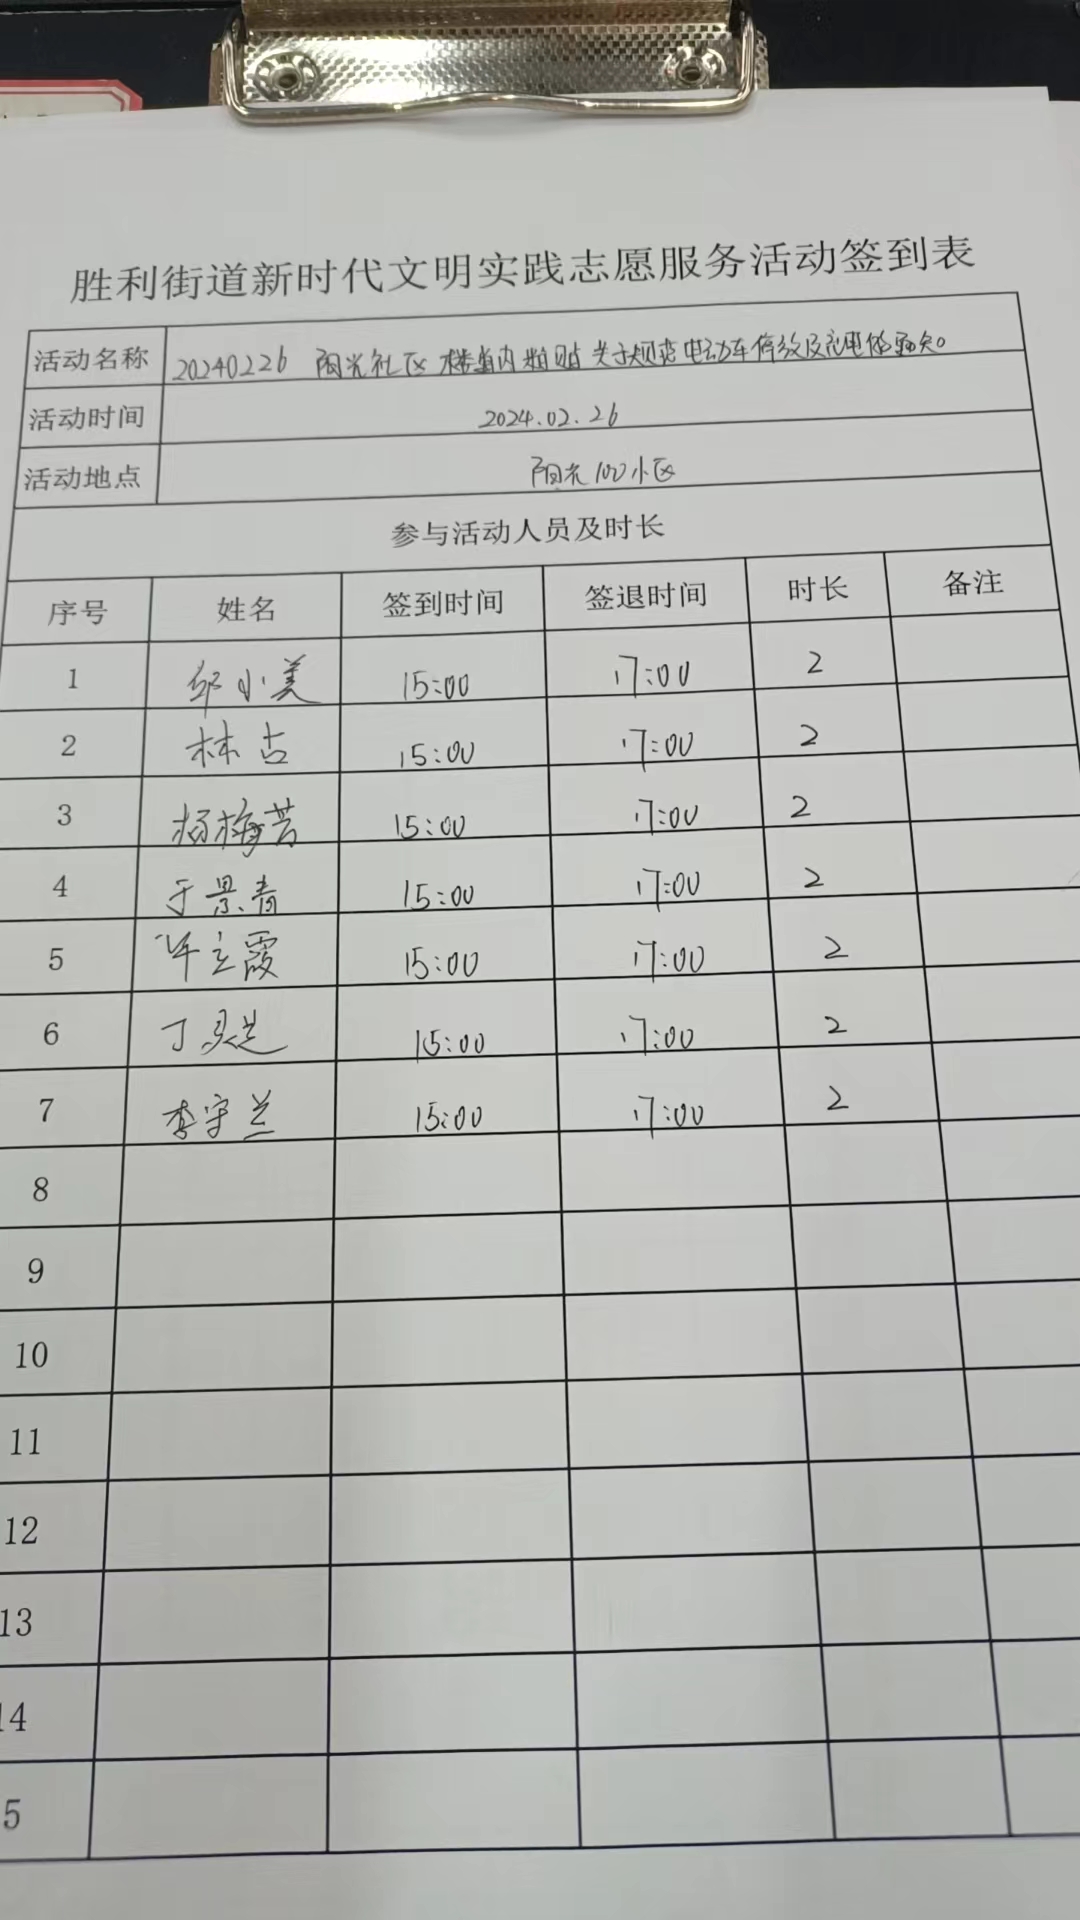 胜利街道新时代文明实践志愿服务活动签到表
活动名称 20240226 阳光社区楼道内粘贴关于规范电动车停放及充电的通知。
活动时间 2024.02.26
活动地点 阳光100小区
参与活动人员及时长
序号 姓名 签到时间 签退时间 时长 备注
1 邹小美 15:00 17:00 2
2 林古 15:00 17:00 2
3 杨梅芳 15:00 17:00 2
4 于景青 15:00 17:00 2
5 许立霞 15:00 17:00 2
6 丁 15:00 17:00 2
7 李守兰 15:00 17:00 2
8
9
10
11
12
13
14
5